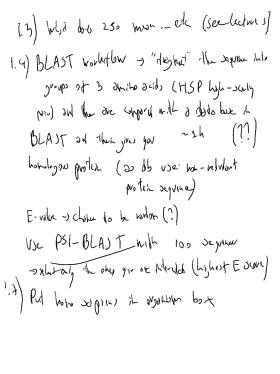 1.3) What does 250 mean ... etc (see lectures)
1.4) BLAST workflow → the sequence into
groups of 3 amino acids (HSP high-scoring
pair) and then are compared with a data base in
BLAST and then gives you ~1h (??)
homologous protein (as db use: non-redundant
protein sequences)
E-value → chance to be random (?)
Use PSI-BLAST with 100 sequences
→ the ones you are interested (highest E score)
1.7) Put homo sapiens in organism box